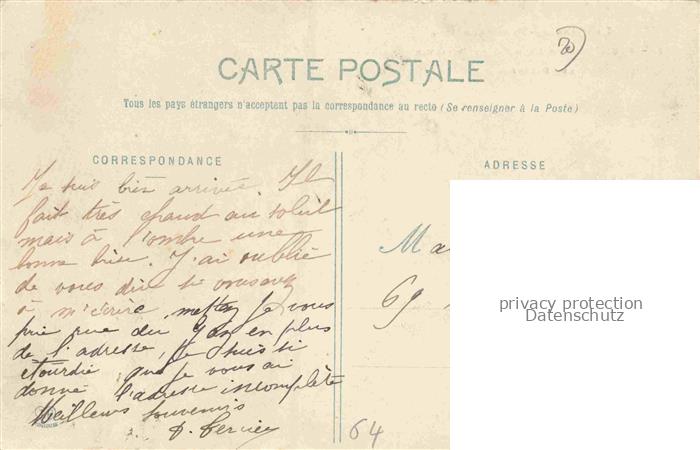 20
CARTE POSTALE
Tous les pays étrangers n'acceptent pas la correspondance au recto (Se renseigner à la Poste)
CORRESPONDANCE
Je suis bien arrivée. Il
fait très chaud au soleil
mais à l'ombre une
bonne brise. J'ai oublié
de vous dire si vous avez
à m'écrire, mettez je vous
prie rue du Gaz en plus
de l'adresse, je suis si
étourdie que je vous ai
donné l'adresse incomplète
Meilleurs souvenirs
ADRESSE
Ma
69
64
privacy protection
Datenschutz